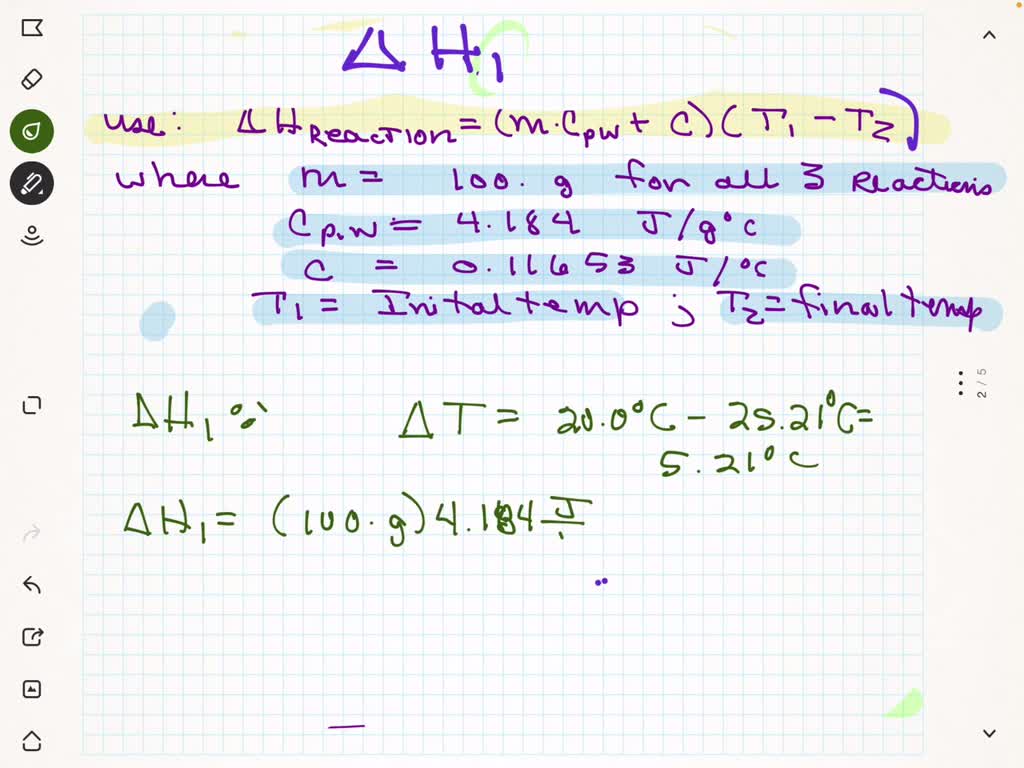 ΔH₁
use: ΔHReaction = (m·Cpw + C)(T₁ - T₂)
where m = 100. g for all 3 Reactions
Cp,w = 4.184 J/g°C
C = 0.11653 J/°C
T₁ = Inital temp ; T₂ = final temp
2/5
ΔH₁: ΔT = 20.0°C - 25.21°C =
5.21°C
ΔH₁ = (100. g) 4.184 J